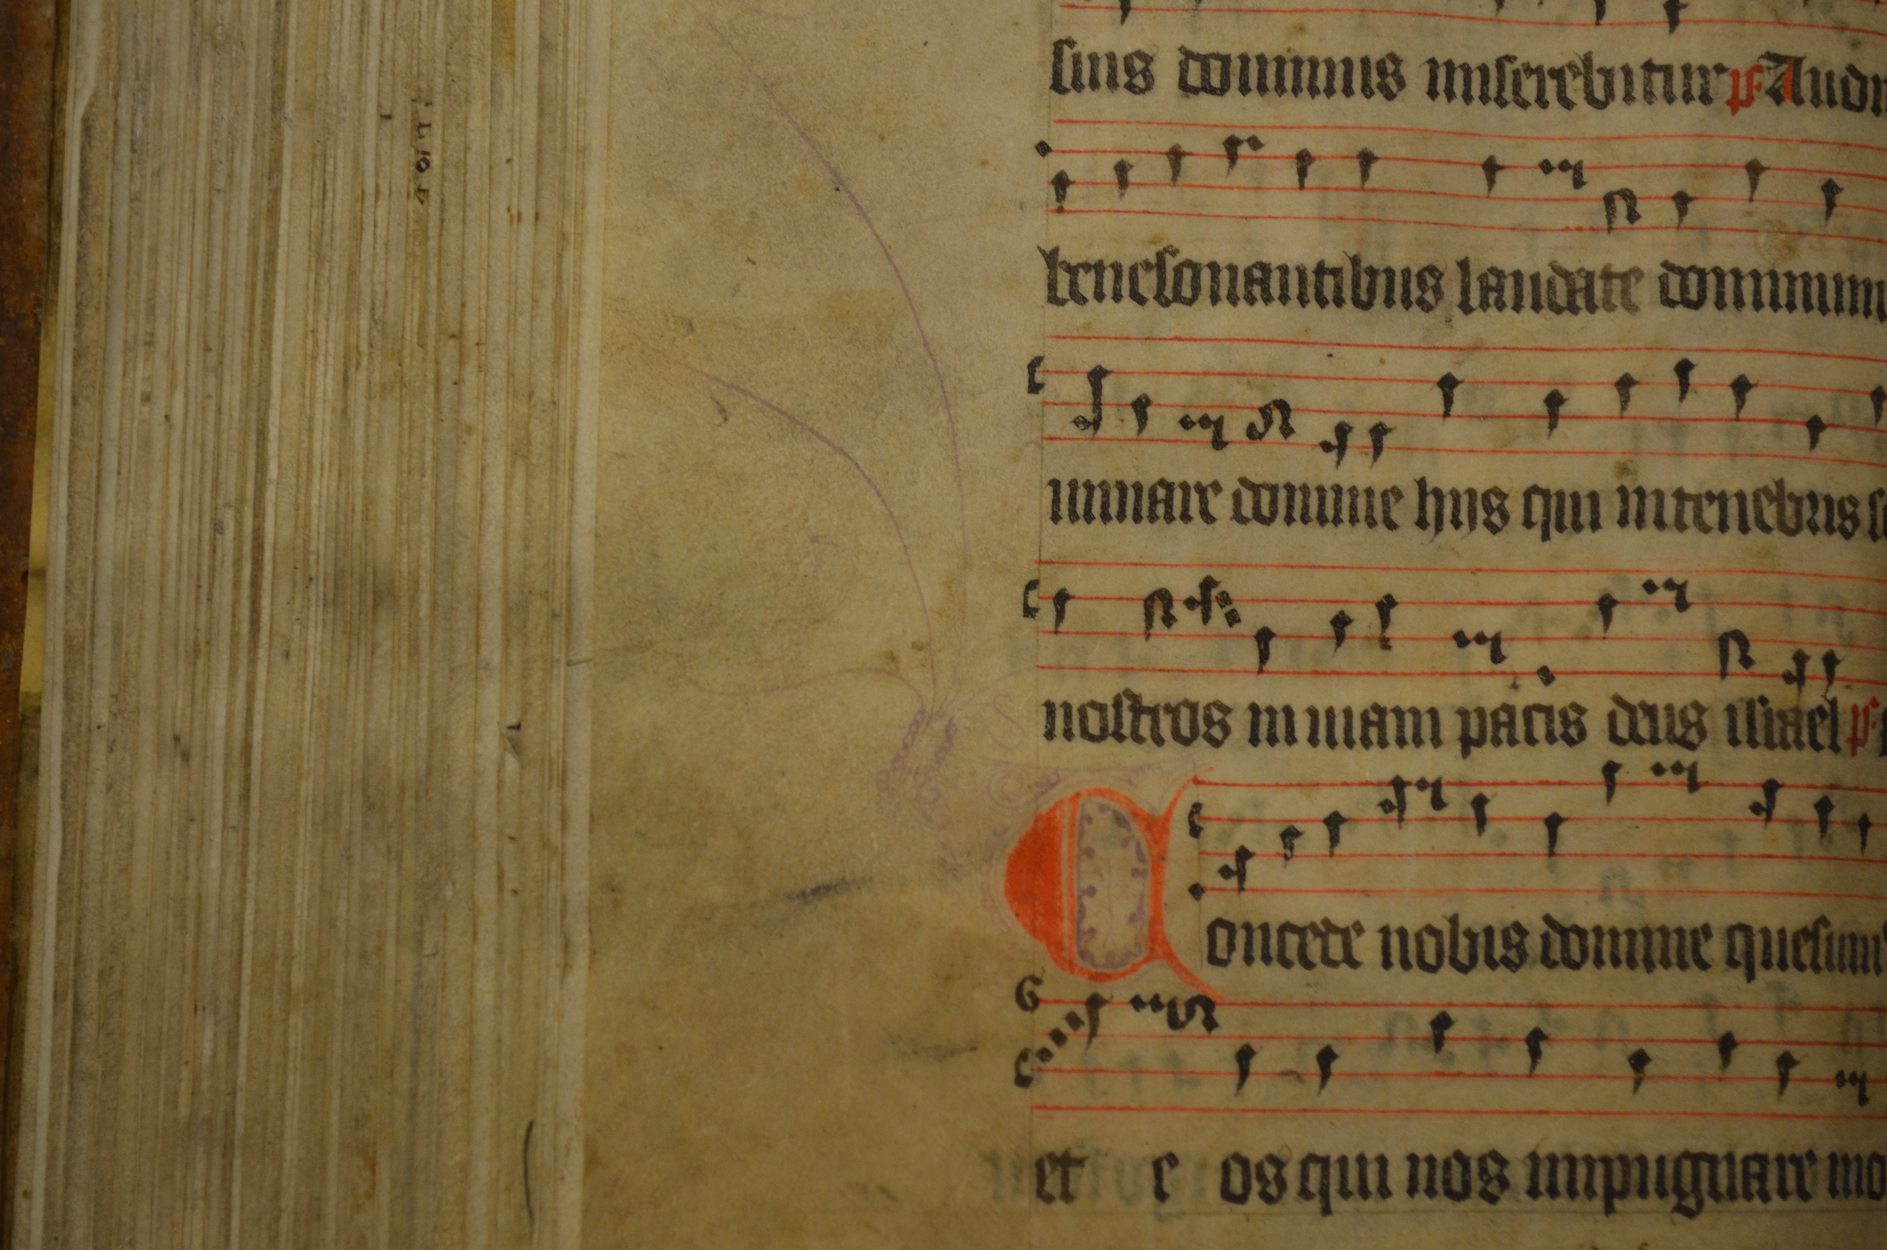 sius dominus miserebitur ps Audi
benesonantibus laudate dominum
luminare domine hiis qui in tenebris se
nostros in uiam pacis deus israel ps
Concede nobis domine quesum
et e os qui nos impugnare mo